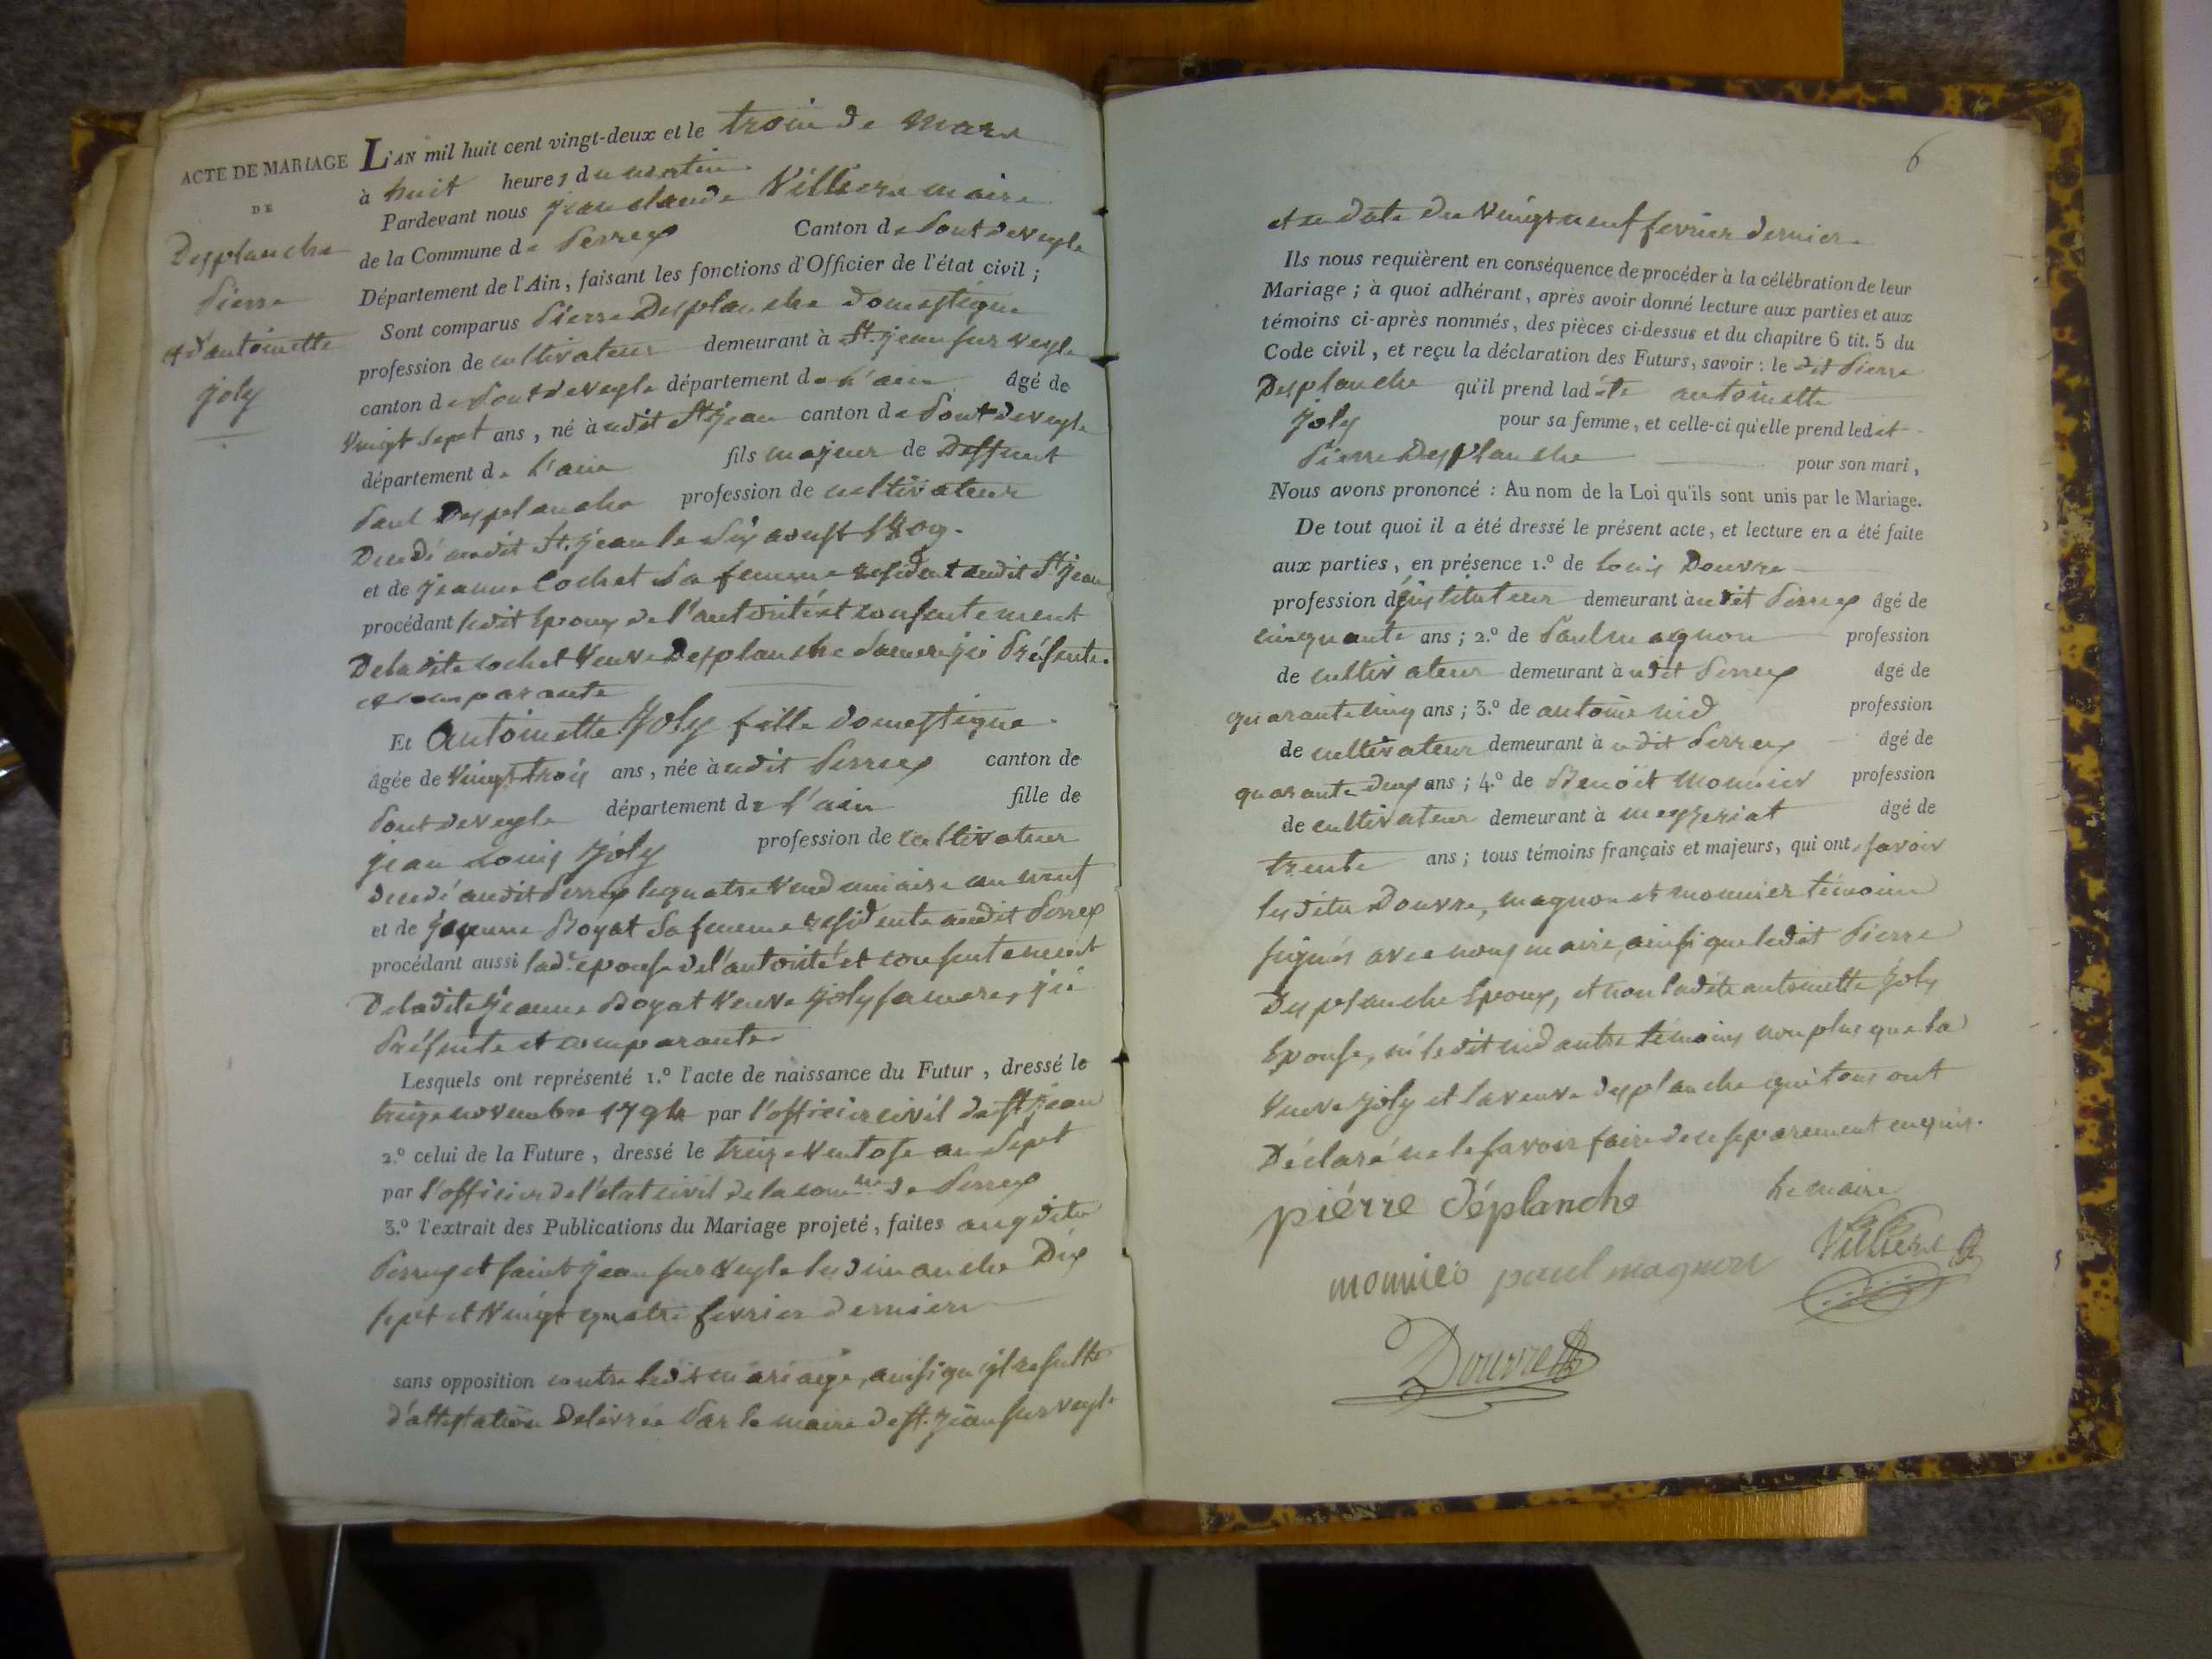 ACTE DE MARIAGE
DE
Desplanche
Pierre
et d'antoinette
joly
L'AN mil huit cent vingt-deux et le trois de mars
à huit heures du matin
Pardevant nous jean claude Villiers maire
de la Commune de Perrex Canton de Pontdeveyle
Département de l'Ain, faisant les fonctions d'Officier de l'état civil ;
Sont comparus Pierre Desplanche domestique
profession de cultivateur demeurant à St. jean sur veyle
canton de Pontdeveyle département de l'ain âgé de
vingt sept ans, né audit St jean canton de Pontdeveyle
département de l'ain fils majeur de Deffunt
Paul Desplanche profession de cultivateur
Decedé audit St. jean le Six aoust 1809.
et de jeanne Cochet Sa femme residant audit St jean
procédant ledit Epoux de l'autorité et consentement
De ladite cochet Veuve Desplanche Sa mere ici Présente.
et comparante
Et Antoinette Joly fille domestique
âgée de vingt trois ans, née audit Perrex canton de
Pontdeveyle département de l'ain fille de
jean louis joly profession de cultivateur
decedé audit Perrex le quatre Vendemiaire an neuf
et de jeanne Boyat Sa femme residente audit Perrex
procédant aussi lad.e epouse de l'autorité et consentement
De ladite jeanne Boyat Veuve joly sa mere, ici
Présente et comparante
Lesquels ont représenté 1.º l'acte de naissance du Futur, dressé le
treize novembre 1794 par l'officier civil de St jean
2.º celui de la Future, dressé le treize Ventose an Sept
par l'officier de l'état civil de la comme de Perrex
3.º l'extrait des Publications du Mariage projeté, faites auxdits
Perrex et saint jean sur veyle les dimanche Dix
sept et vingt quatre fevrier derniers
sans opposition contre ledit mariage, ainsi qu'il resulte
d'attestation Delivrée Par le maire de St. jean sur veyle
6
et en date du vingt neuf fevrier dernier
Ils nous requièrent en conséquence de procéder à la célébration de leur
Mariage ; à quoi adhérant, après avoir donné lecture aux parties et aux
témoins ci-après nommés, des pièces ci-dessus et du chapitre 6 tit. 5 du
Code civil, et reçu la déclaration des Futurs, savoir : le dit Pierre
Desplanche qu'il prend ladite antoinette
joly pour sa femme, et celle-ci qu'elle prend ledit
Pierre Desplanche pour son mari,
Nous avons prononcé : Au nom de la Loi qu'ils sont unis par le Mariage.
De tout quoi il a été dressé le présent acte, et lecture en a été faite
aux parties, en présence 1.º de louis Douvre
profession d'instituteur demeurant audit Perrex âgé de
cinquante ans ; 2.º de Paul magnon profession
de cultivateur demeurant audit Perrex âgé de
quarante cinq ans ; 3.º de antoine nid profession
de cultivateur demeurant à udit Perrex âgé de
quarante deux ans ; 4.º de Benoit monnier profession
de cultivateur demeurant à mezeriat âgé de
trente ans ; tous témoins français et majeurs, qui ont, savoir
lesdits Douvre, magnon et monnier témoins
signés avec nous maire, ainsi que ledit Pierre
Desplanche Epoux, et non ladite antoinette joly
Epouse, ni ledit nid autre témoins non plus que la
veuve joly et la veuve desplanche qui tous ont
Déclaré ne le savoir faire de ce separement enquis.
piérre déplanche le maire
monnier paul magnon Villiers
Douvre